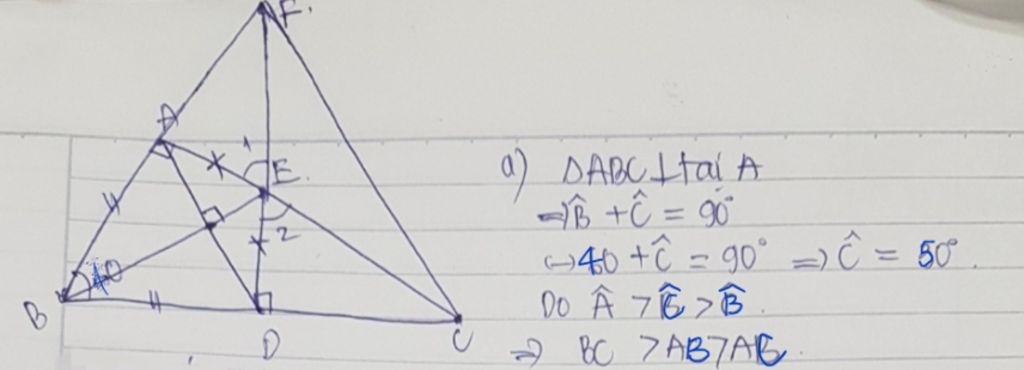 F.
A
1
E.
2
40
B
D
C
a) ΔABC ⊥ tại A
=> B̂ + Ĉ = 90°
(->40 + Ĉ = 90° => Ĉ = 50°.
Do Â > Ĉ > B̂.
=> BC > AB > AC.